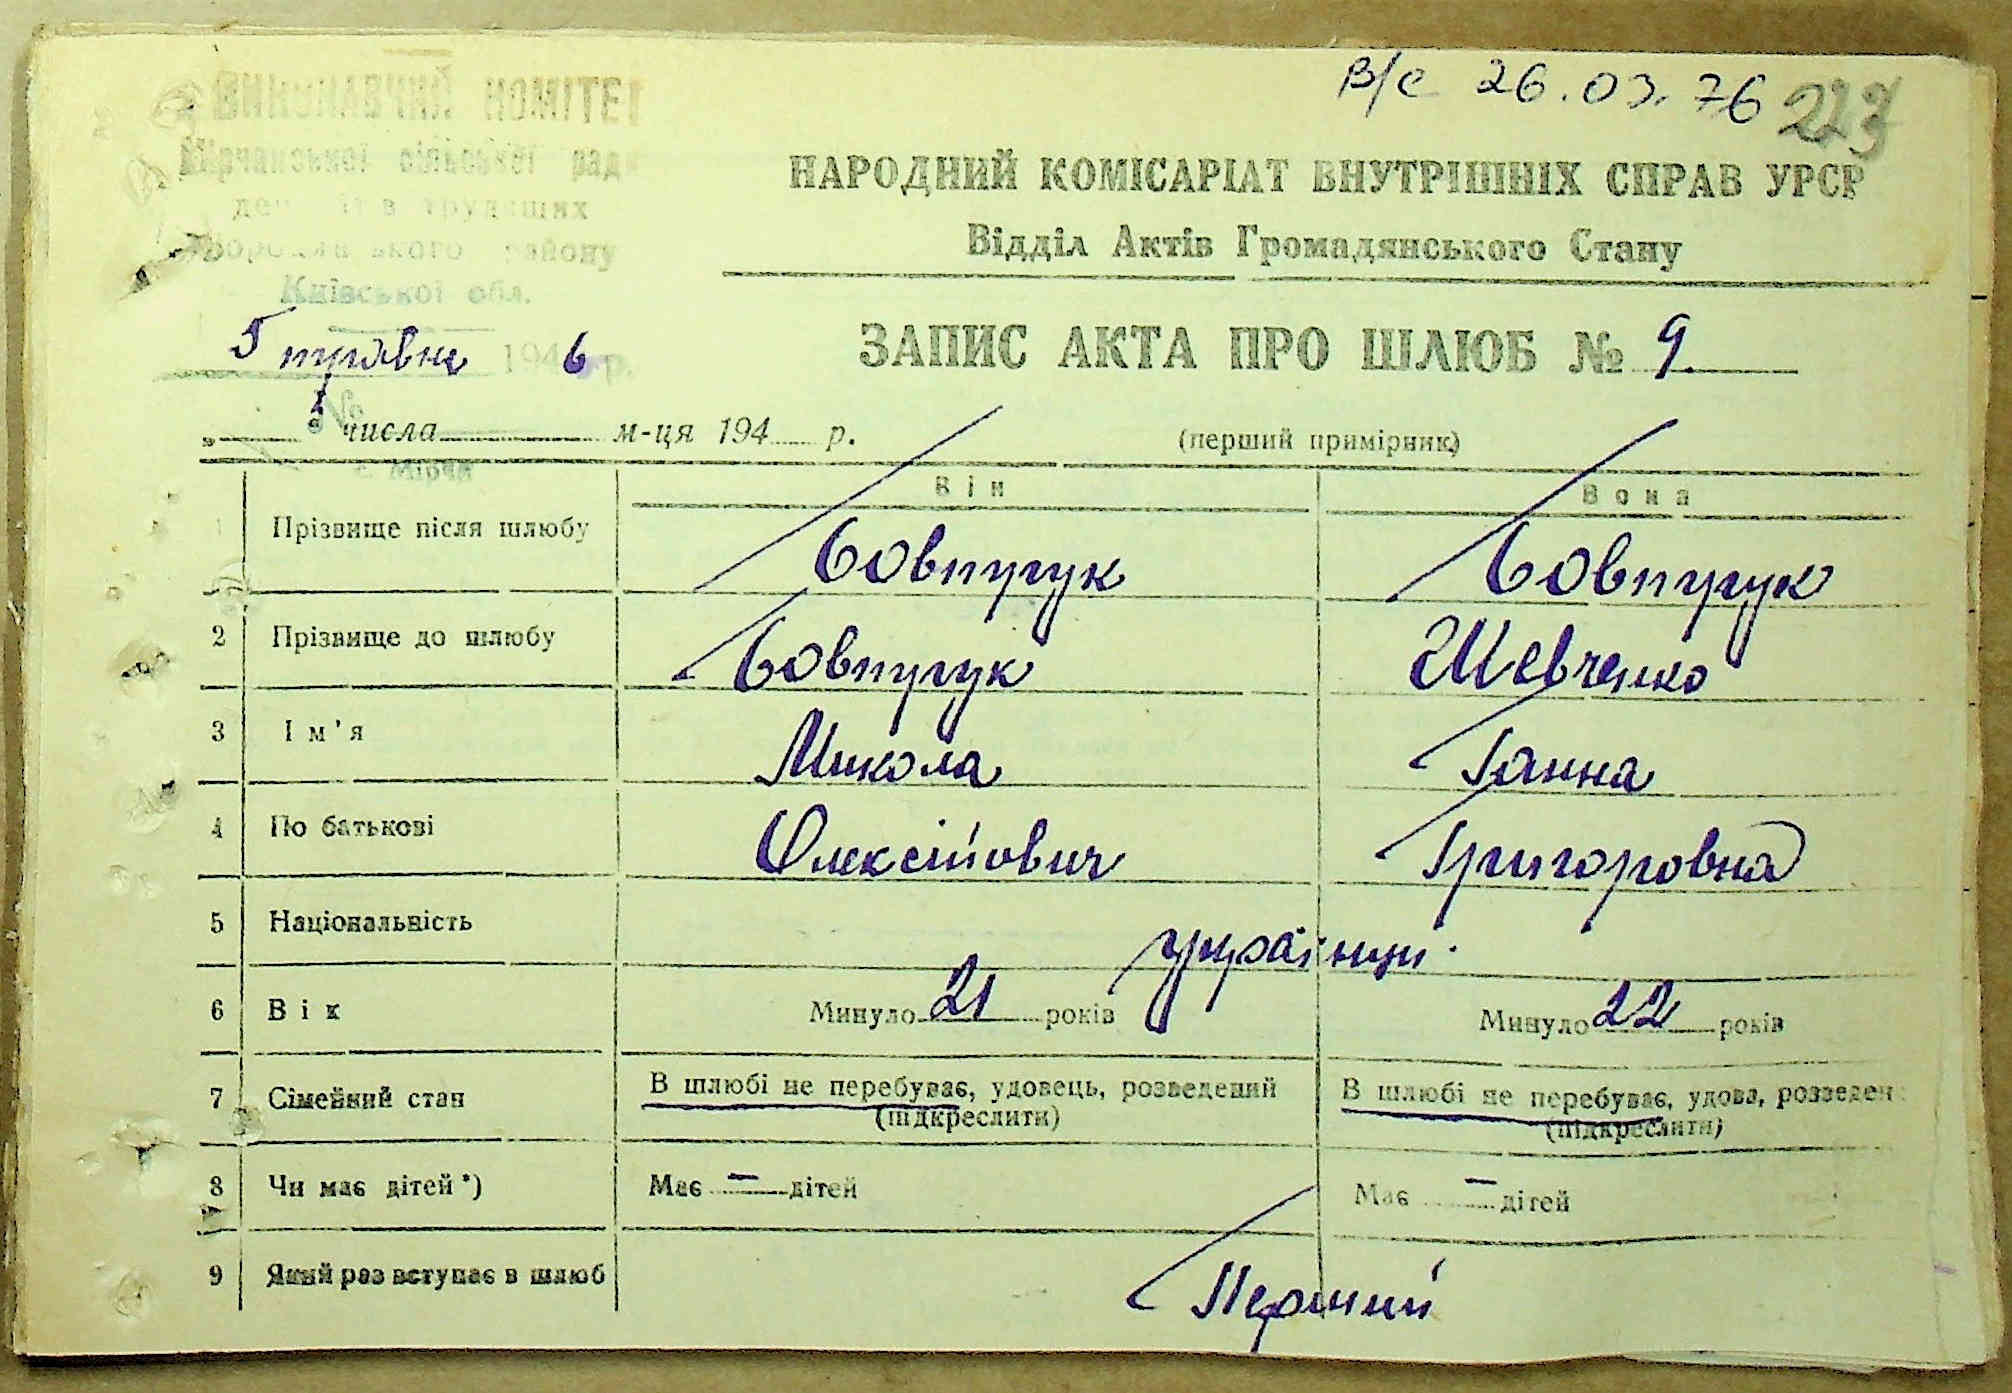 В/с 26.03.76
ВИКОНАВЧИЙ КОМІТЕТ
Мірчанської сільської ради
депутатів трудящих
Бородянського району
Київської обл.
НАРОДНИЙ КОМІСАРІАТ ВНУТРІШНІХ СПРАВ УРСР
Відділ Актів Громадянського Стану
5 травня 1946 р.
ЗАПИС АКТА ПРО ШЛЮБ № 9.
№
„ числа м-ця 194 р.
(перший примірник)
с. Мірча
Він Вона
1 Прізвище після шлюбу Бовпугук Бовпугук
2 Прізвище до шлюбу Бовпугук Шевченко
3 Ім'я Микола Ганна
4 По батькові Олексійович Григоровна
5 Національність українці.
6 Вік Минуло 21 років Минуло 22 років
7 Сімейний стан В шлюбі не перебуває, удовець, розведений В шлюбі не перебуває, удова, розведен
(підкреслити) (підкреслити)
8 Чи має дітей*) Має — дітей Має — дітей
9 Який раз вступає в шлюб Перший